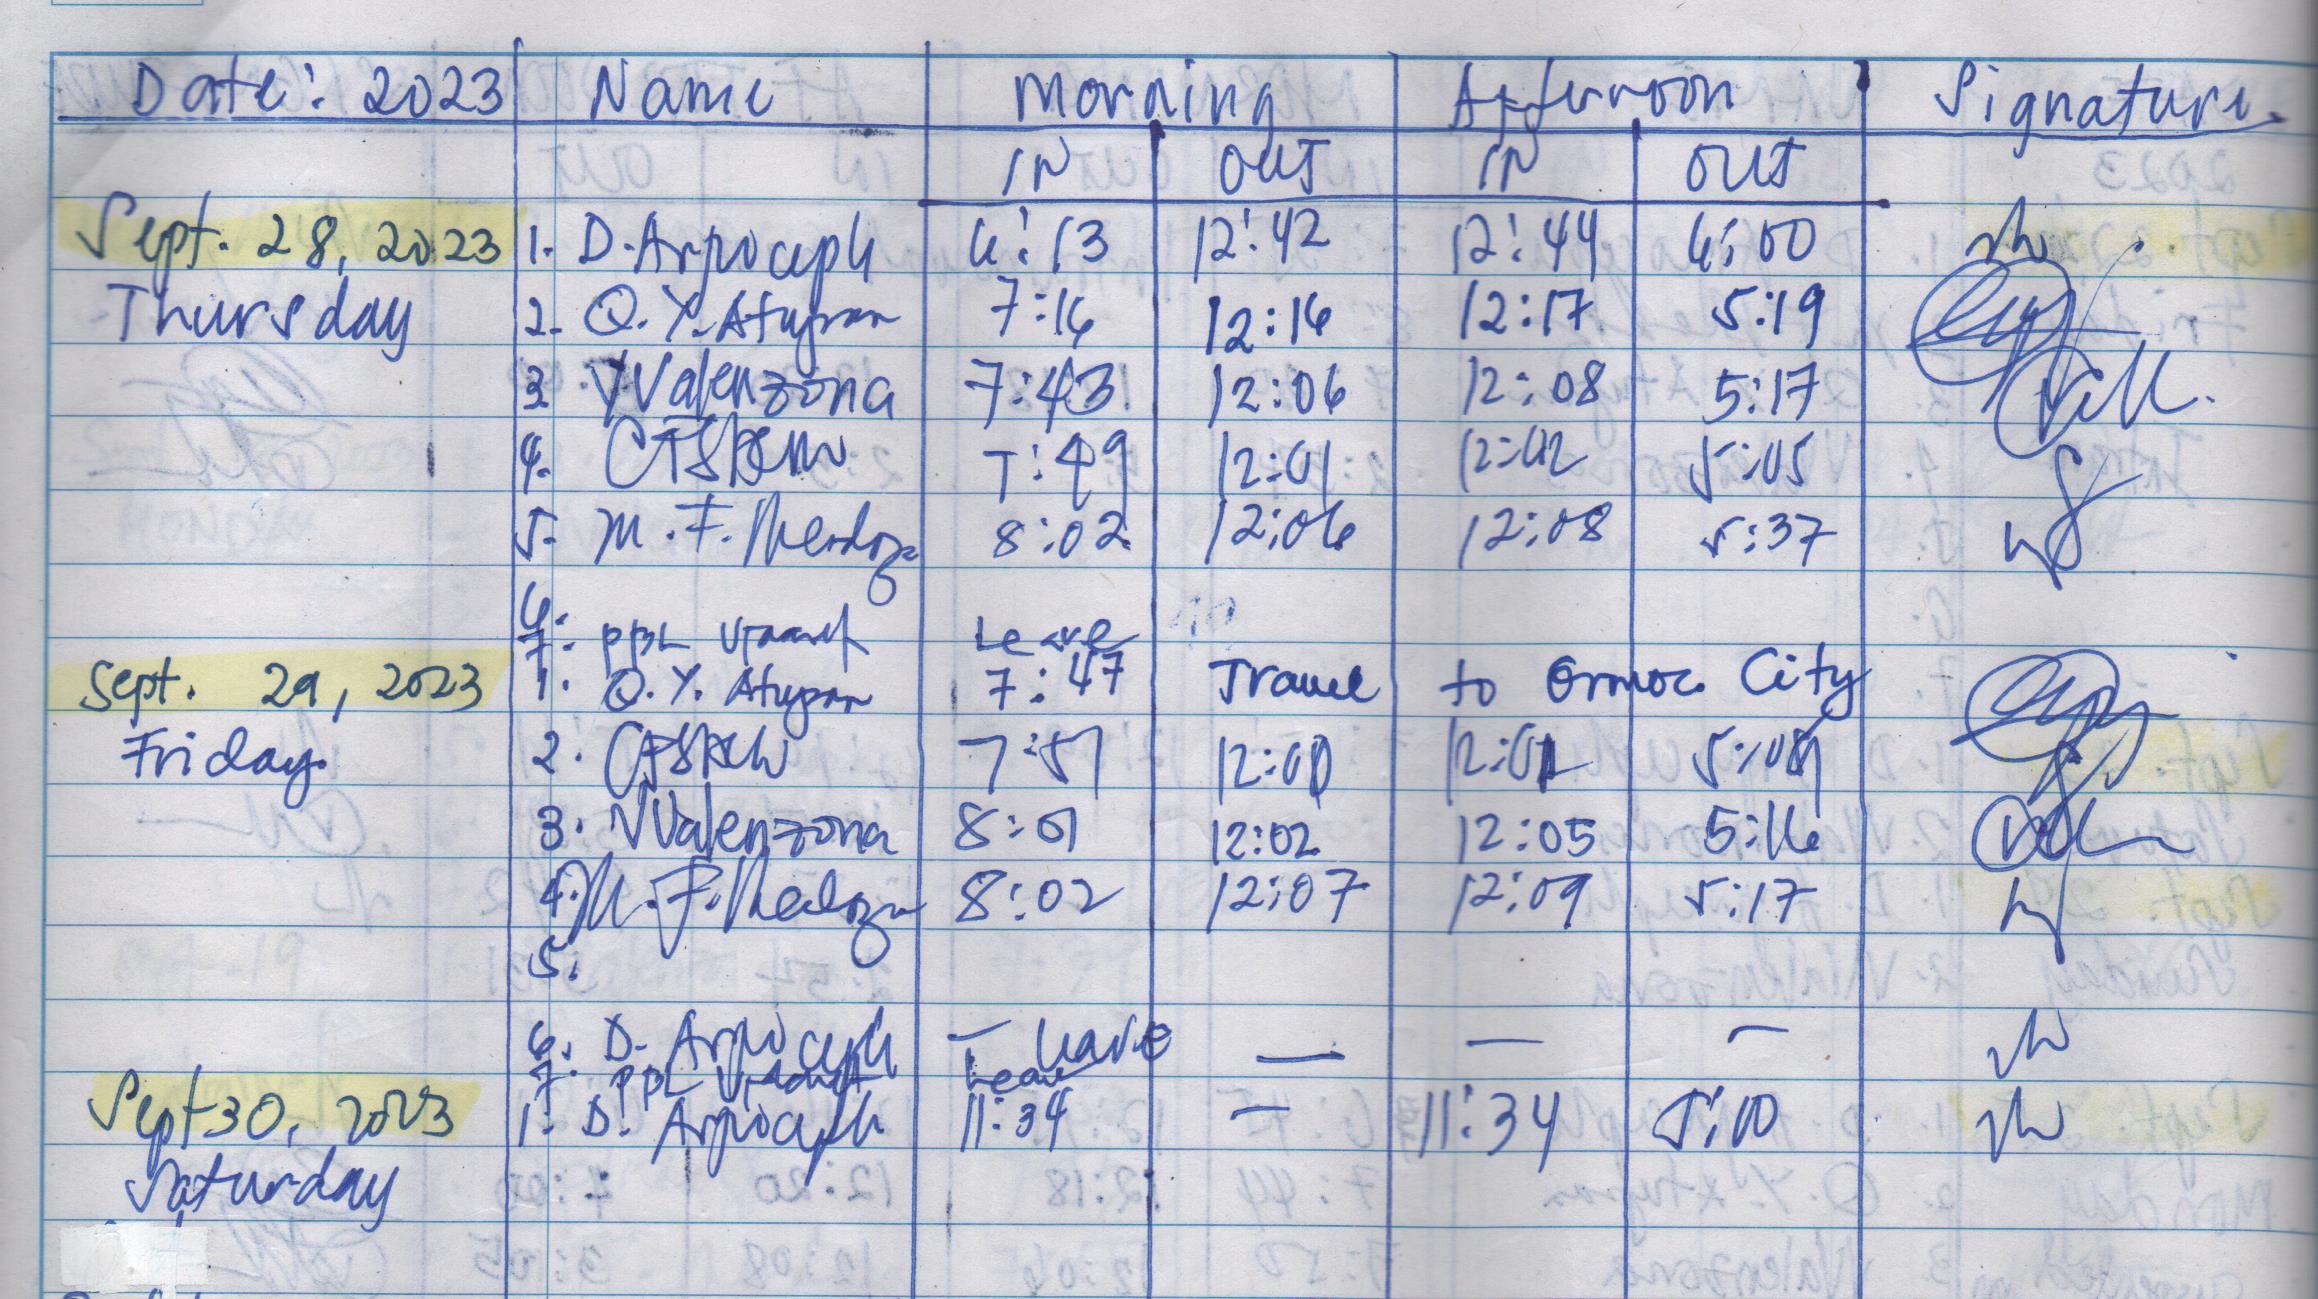 Date: 2023 Name Morning Afternoon Signature
IN OUT IN OUT
Sept. 28, 2023 1. D. Arpoceph 6:13 12:42 12:44 6:00
Thursday 2. Q. Y. Atupan 7:16 12:16 12:17 5:19
3. VValenzona 7:43 12:06 12:08 5:17
4. 7:49 12:01 12:02 5:05
5. M. F. Mendoza 8:02 12:06 12:08 5:37
6.
7. PBL Leave
Sept. 29, 2023 1. Q. Y. Atupan 7:47 Travel to Ormoc City
Friday 2. 7:51 12:00 12:01
3. VValenzona 8:01 12:02 12:05 5:16
4. M. F. Mendoza 8:02 12:07 12:09 5:17
5.
6. D. Arpoceph — Leave — — —
7. PBL Leave
Sept 30, 2023 1. D. Arpoceph 11:34 — 11:34 5:10
Saturday